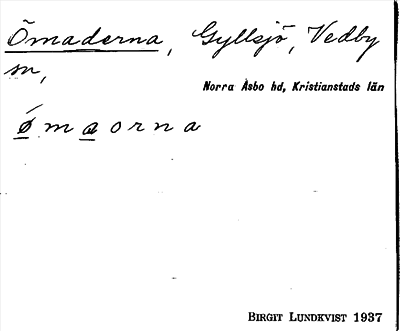 Ömaderna, Gyllsjö, Vedby
sn,
Norra Åsbo hd, Kristianstads län
ǿmaorna
BIRGIT LUNDKVIST 1937